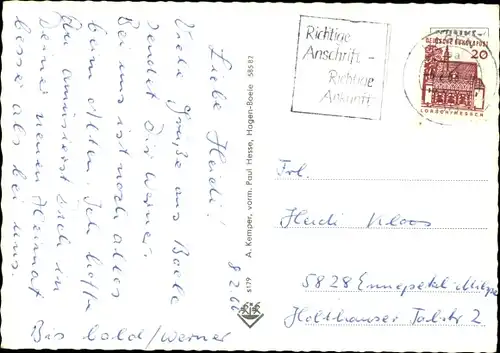 Liebe Heidi!
Viele Grüße aus Boele
sendet Dir Werner.
Bei uns ist noch alles
beim Alten. Ich hoffe
Du amüsierst Dich in
Deiner neuen Heimat
besse als bei
uns.
Bis bald/Werner
8.2.66
A. Kemper, vorm. Paul Hesse, Hagen-Boele 58583
5179
Richtige
Anschrift -
Richtige
Ankunft
DEUTSCHE BUNDESPOST
20
LORSCH/HESSEN
Frl.
Heidi Kloos
5828 Ennepetal-Milspe
Holthauser Talstr. 2